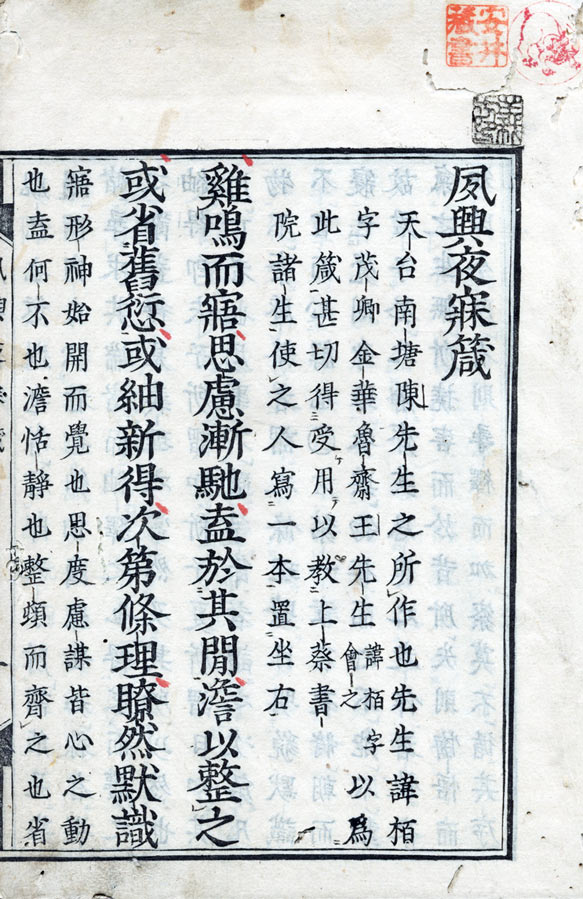 安井
藏書
夙興夜寐箴
天台南塘陳先生之所作也先生諱栢
字茂卿金華魯齋王先生諱栢字會之以為
此箴甚切得受用以教上蔡書
院諸生使之人寫一本置坐右
雞鳴而寤思慮漸馳盍於其閒澹以整之
或省舊愆或紬新得次第條理瞭然默識
寤形神始開而覺也思度慮謀皆心之動
也盍何不也澹恬靜也整頓而齊之也省